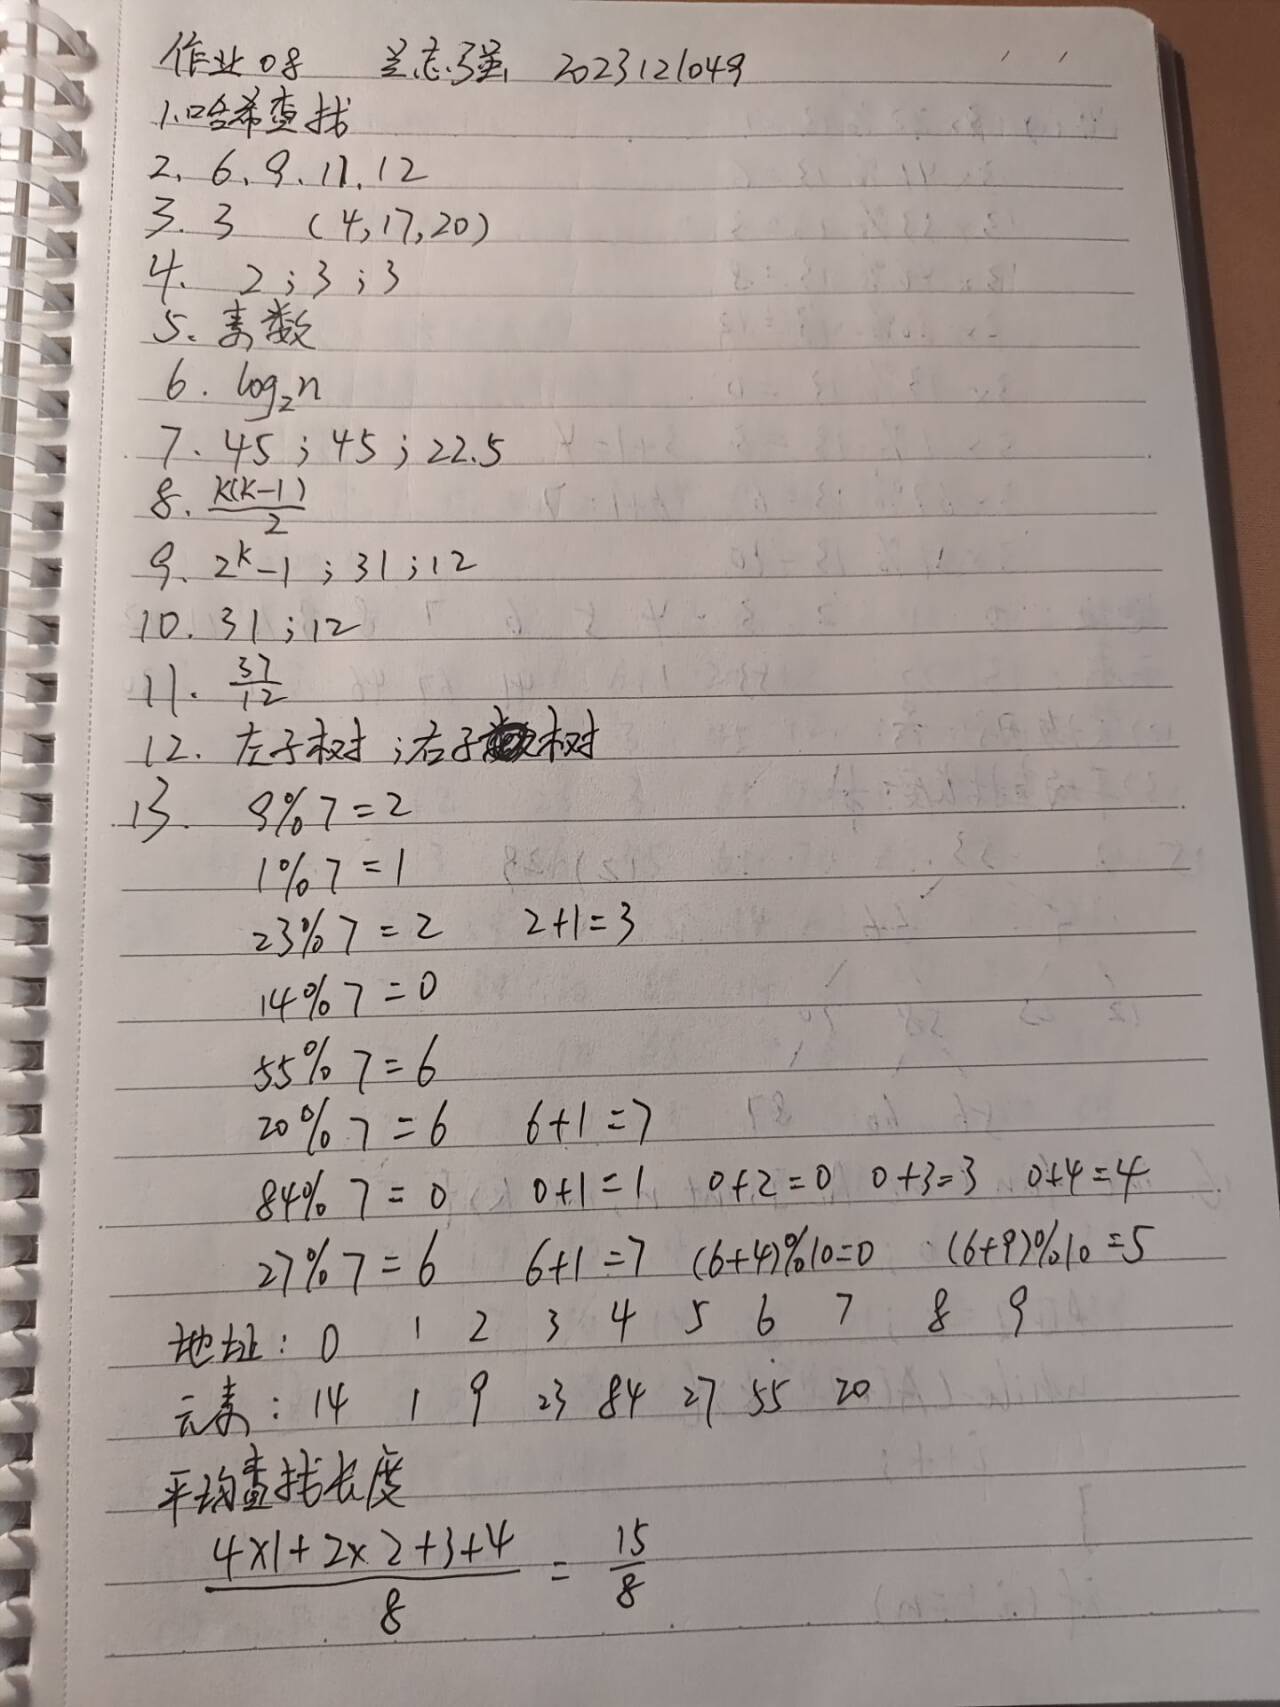 作业08 兰志强 2023121049
1.哈希查找
2、6、9、11、12
3. 3 (4,17,20)
4. 2;3;3
5、素数
6. log₂n
7、45;45;22.5
8、K(K-1)/2
9、2ᵏ-1;31;12
10、31;12
11、37/12
12、左子树;右子树
13. 9%7=2
1%7=1
23%7=2 2+1=3
14%7=0
55%7=6
20%7=6 6+1=7
84%7=0 0+1=1 0+2=0 0+3=3 0+4=4
27%7=6 6+1=7 (6+4)%10=0 (6+9)%10=5
地址:0 1 2 3 4 5 6 7 8 9
元素:14 1 9 23 84 27 55 20
平均查找长度
(4×1+2×2+3+4)/8 = 15/8